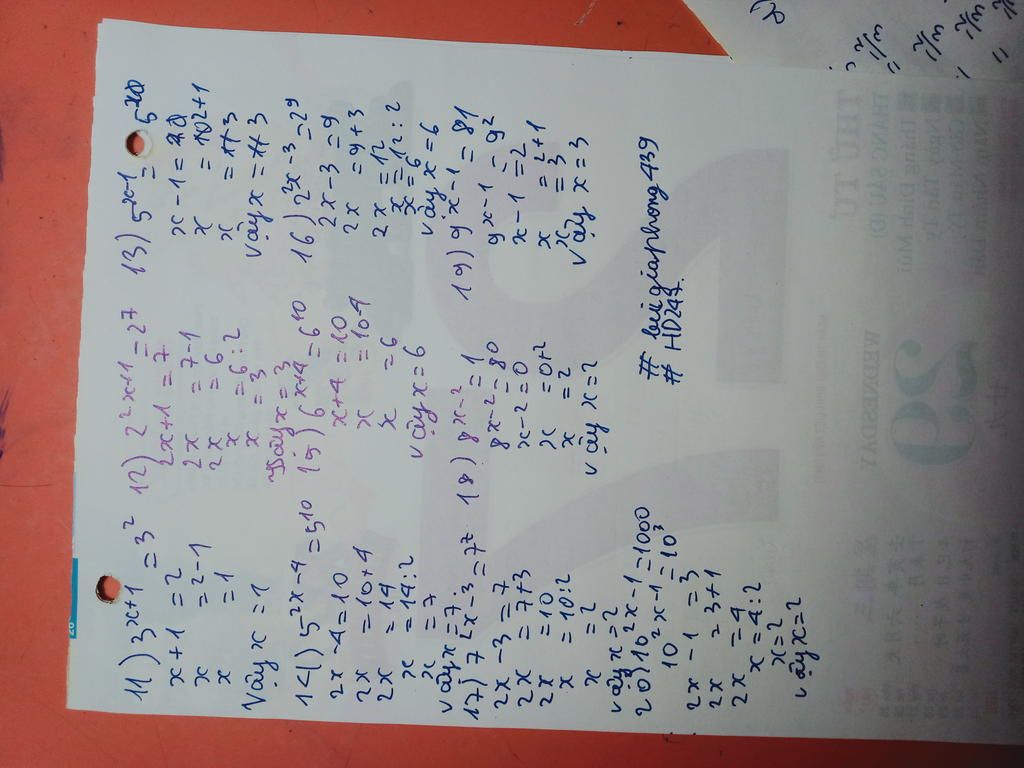 11) 3^x+1 = 3^2
x+1 = 2
x = 2-1
x = 1
Vậy x = 1
12) 2^2x+1 = 2^7
2x+1 = 7
2x = 7-1
2x = 6
x = 6:2
x = 3
Vậy x = 3
13) 5^x-1 =
x-1 =
x = 2+1
x = 3
Vậy x = 3
14) 5^2x-4 = 5^10
2x-4 = 10
2x = 10+4
2x = 14
x = 14:2
x = 7
Vậy x = 7
15) 6^x+4 = 6^10
x+4 = 10
x = 10-4
x = 6
Vậy x = 6
16) 2^2x-3 = 2^9
2x-3 = 9
2x = 9+3
2x = 12
x = 12:2
x = 6
Vậy x = 6
17) 7^2x-3 = 7^7
2x-3 = 7
2x = 7+3
2x = 10
x = 10:2
x = 2
Vậy x = 2
18) 8^x-2 = 1
8^x-2 = 8^0
x-2 = 0
x = 0+2
x = 2
Vậy x = 2
19) 9^x-1 = 81
9^x-1 = 9^2
x-1 = 2
x = 2+1
x = 3
Vậy x = 3
20) 10^2x-1 = 1000
10^2x-1 = 10^3
2x-1 = 3
2x = 3+1
2x = 4
x = 4:2
x = 2
Vậy x = 2
# buigiaphong439
# HD247.